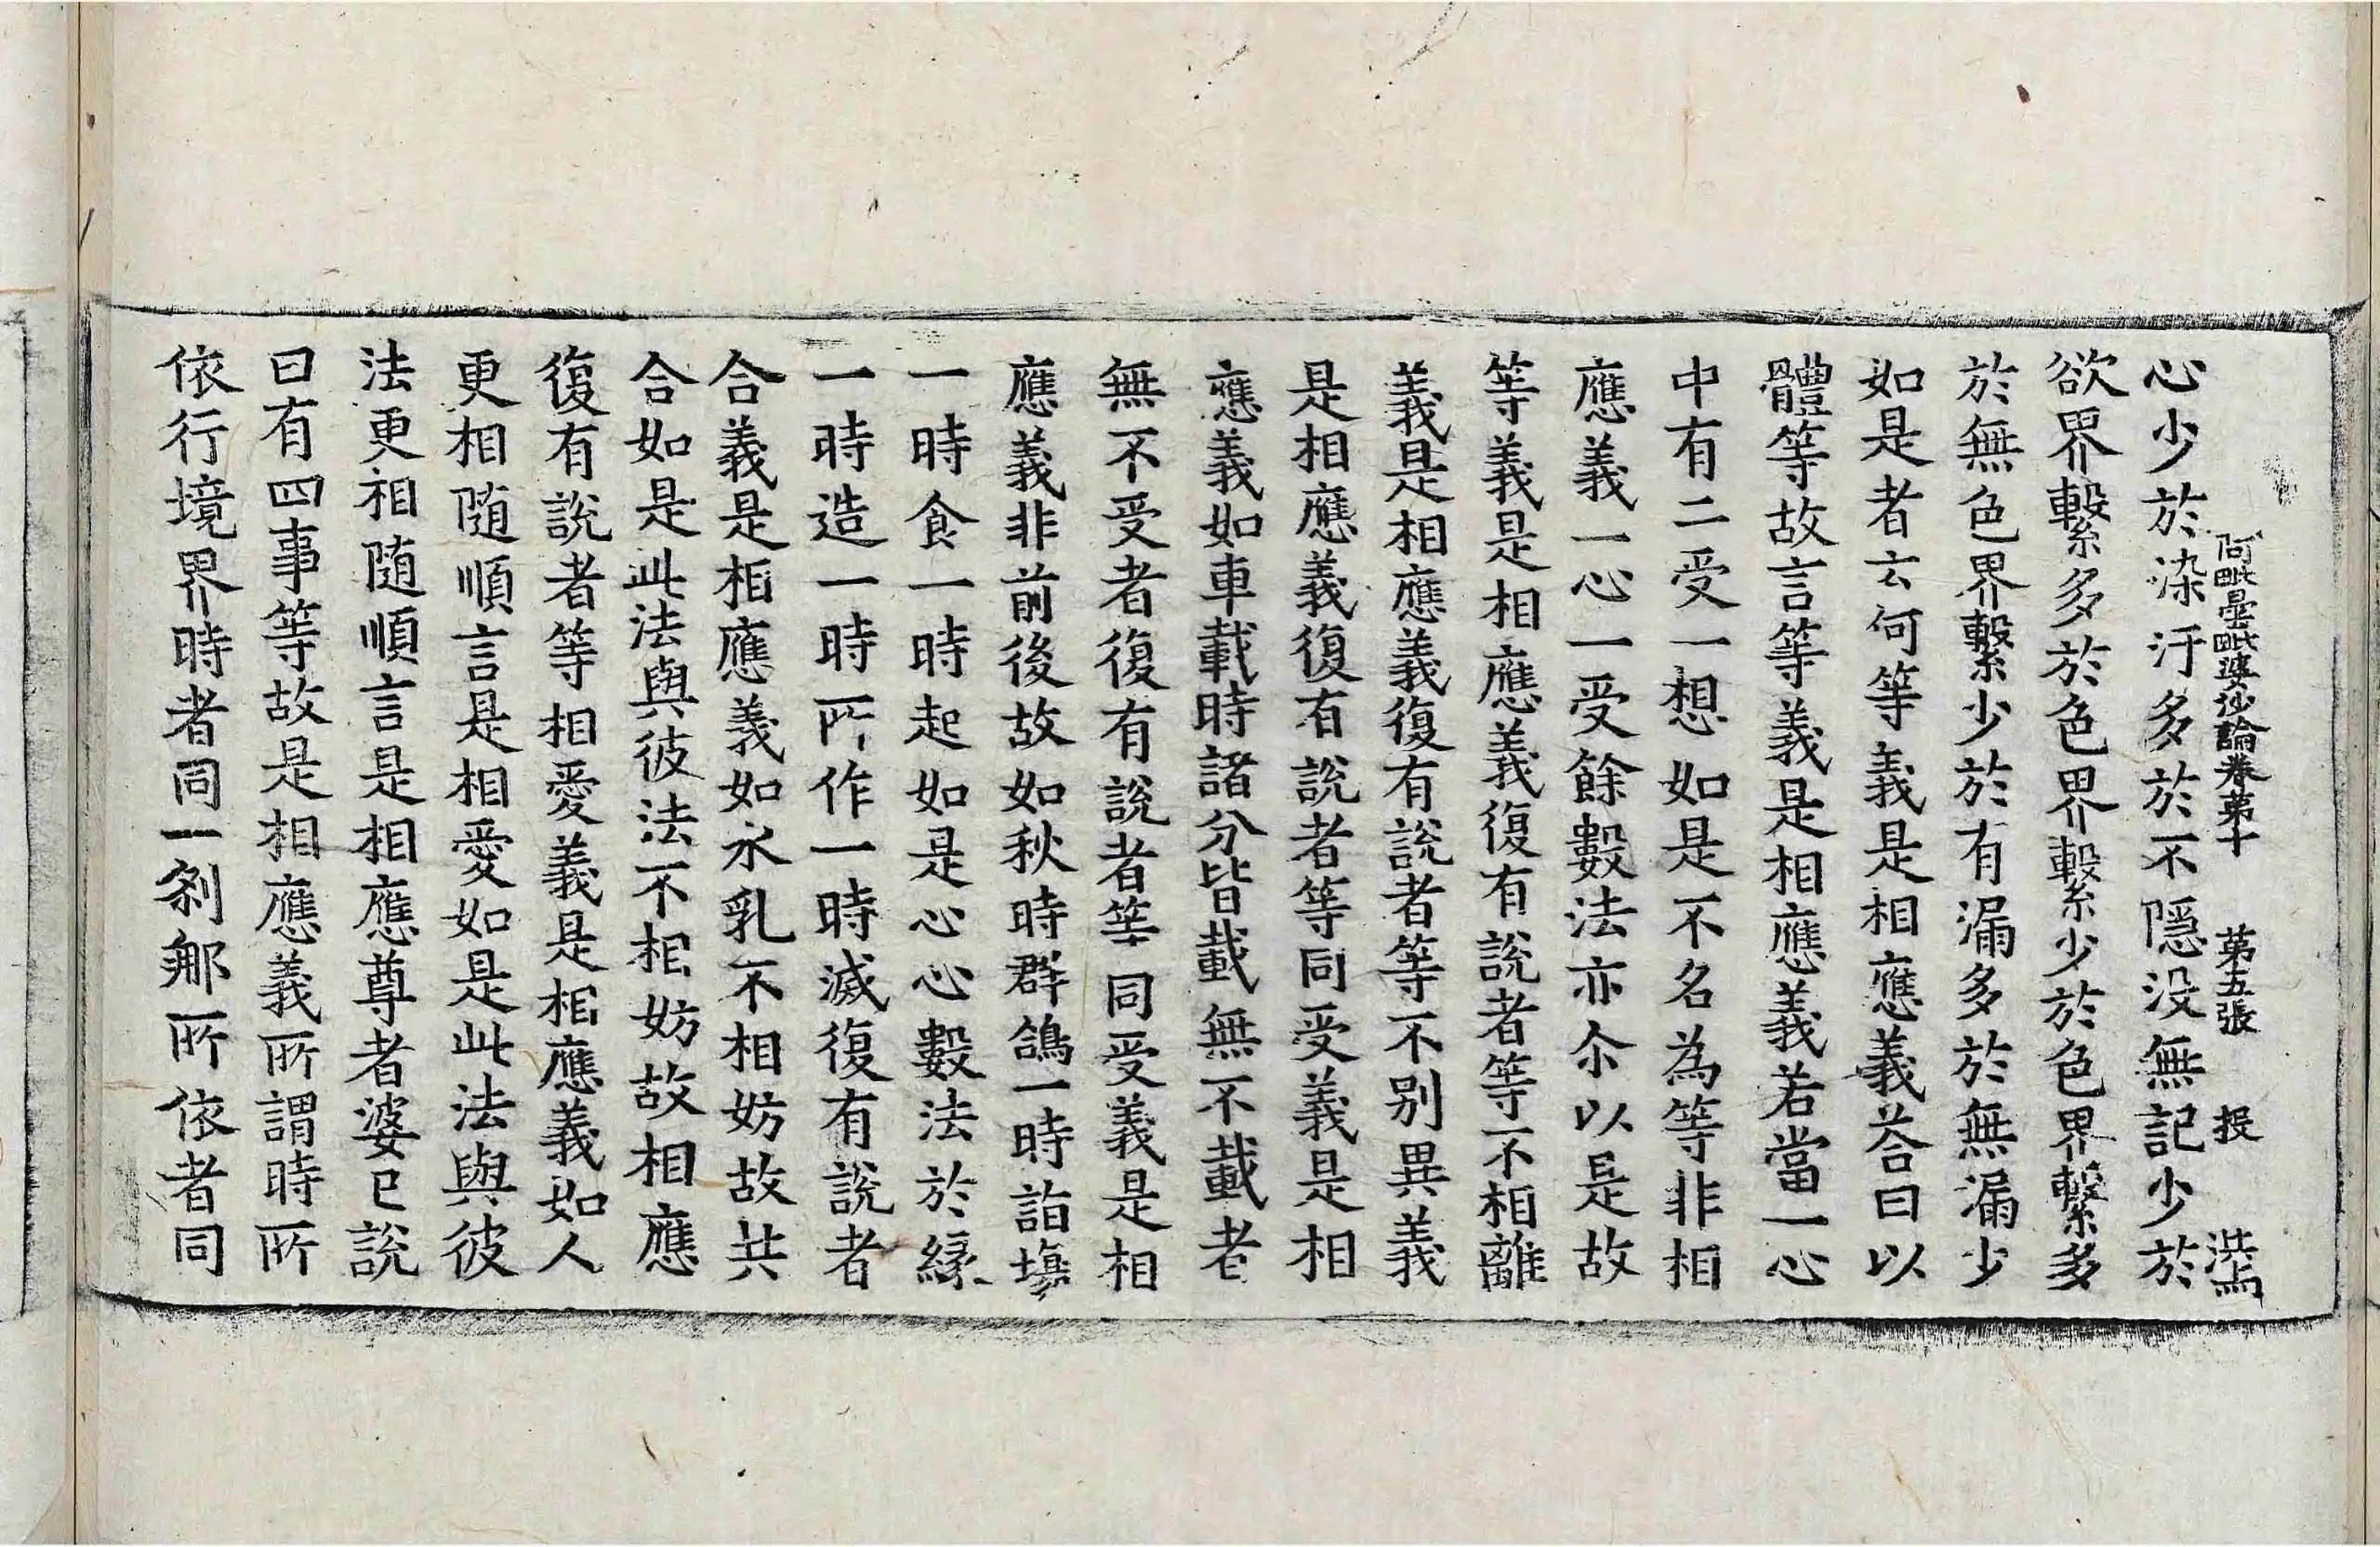 阿毗曇毗婆沙論卷第十　第五張　投　洪雨
心少於染汙多於不隱没無記少於
欲界繫多於色界繫少於色界繫多
於無色界繫少於有漏多於無漏少
如是者云何等義是相應義荅曰以
體等故言等義是相應義若當一心
中有二受一想如是不名為等非相
應義一心一受餘數法亦尒以是故
等義是相應義復有說者等不相離
義是相應義復有說者等不別異義
是相應義復有說者等同受義是相
應義如車載時諸分皆載無不載者
無不受者復有說者等同受義是相
應義非前後故如秋時群鴿一時詣塲
一時食一時起如是心心數法於緣
一時造一時所作一時滅復有說者
合義是相應義如水乳不相妨故共
合如是此法與彼法不相妨故相應
復有說者等相愛義是相應義如人
更相随順言是相愛如是此法與彼
法更相随順言是相應尊者婆已說
曰有四事等故是相應義所謂時所
依行境界時者同一剎那所依者同